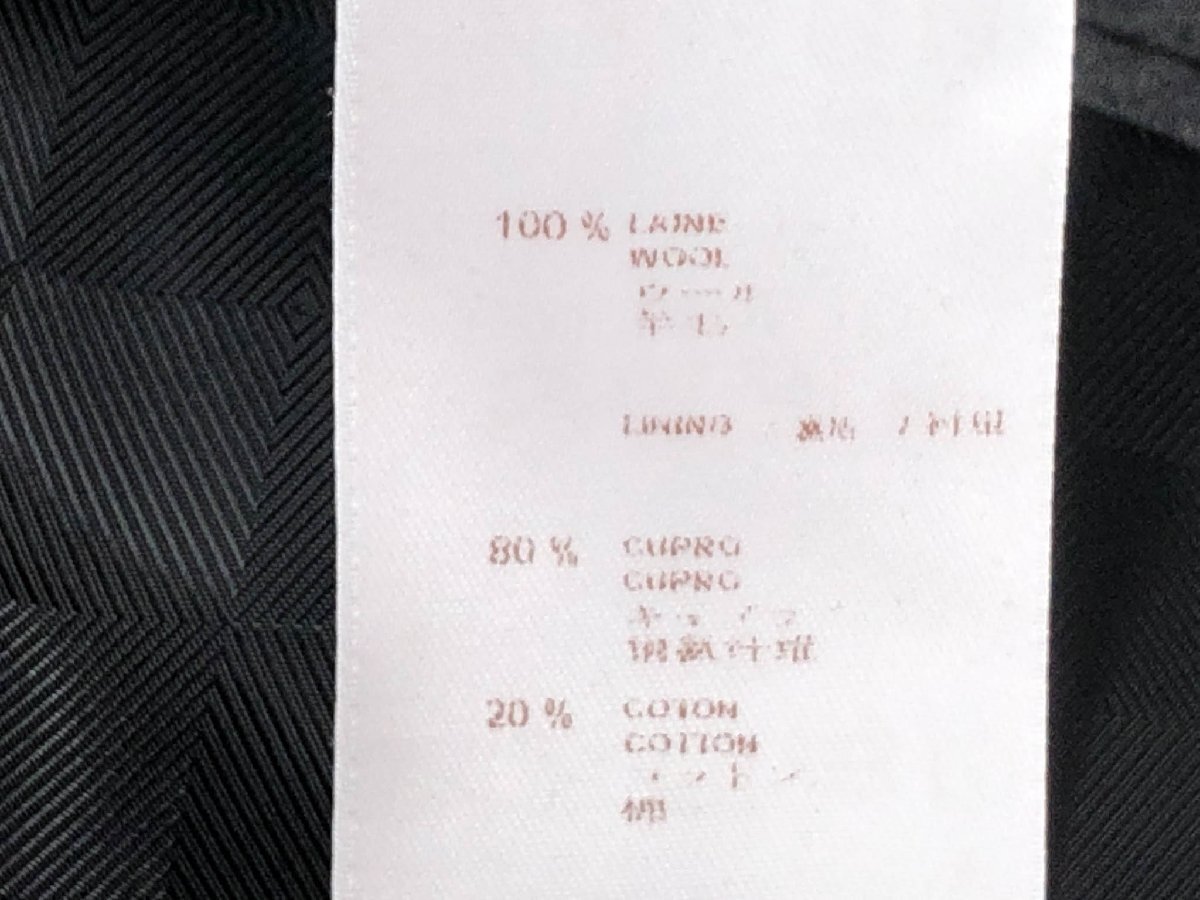 100 % LAINE
WOOL
ウール
羊毛
LINING 裏地 / 衬里
80 % CUPRO
CUPRO
キュプラ
铜氨纤维
20 % COTON
COTTON
コットン
棉